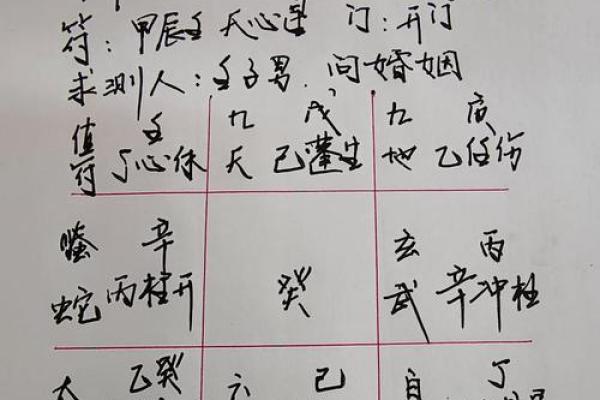 符：甲辰壬 天心星 门：开门
求测人：壬子男，问婚姻
值 壬 九 戊 九 庚
符 丁心休 天 己蓬生 地 乙任伤
螣 辛 玄 丙
蛇 丙柱开 癸 武 辛冲柱
太 乙癸 六 己 白 丁